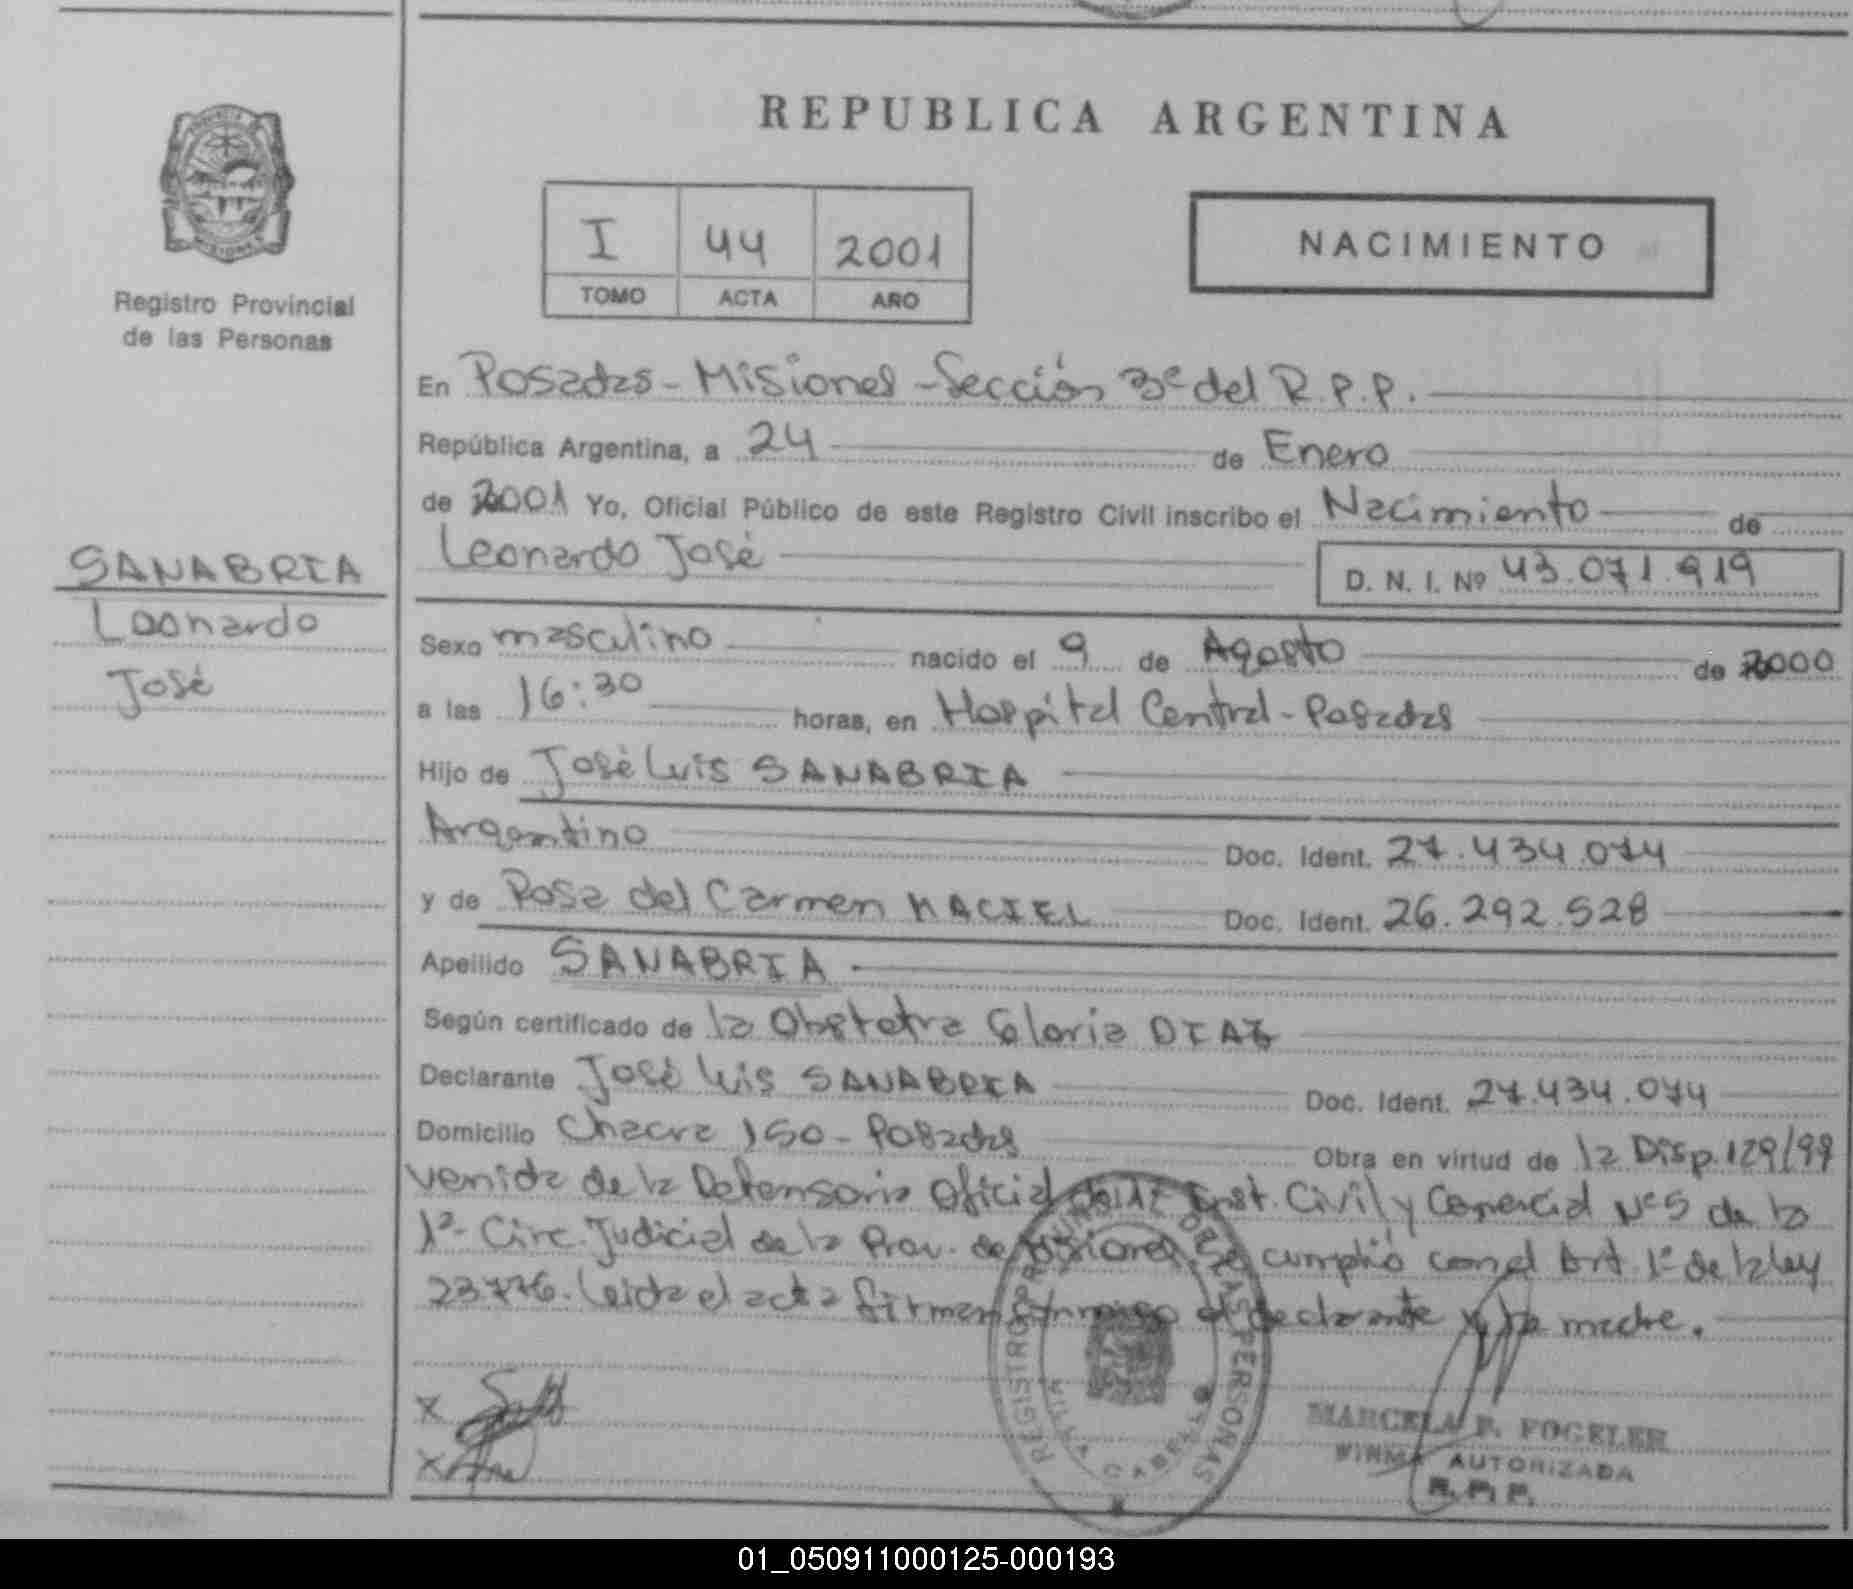 REPUBLICA ARGENTINA
MISIONES
Registro Provincial
de las Personas
I 44 2001
TOMO ACTA AÑO
NACIMIENTO
En Posadas - Misiones - Sección 3ª del R.P.P.
República Argentina, a 24 de Enero
de 2001 Yo, Oficial Público de este Registro Civil inscribo el Nacimiento de
Leonardo José D. N. I. Nº 43.071.919
SANABRIA
Leonardo
José
Sexo masculino nacido el 9 de Agosto de 2000
a las 16:30 horas, en Hospital Central - Posadas
Hijo de José Luis SANABRIA
Argentino Doc. Ident. 27.434.074
y de Rosa del Carmen MACIEL Doc. Ident. 26.292.528
Apellido SANABRIA
Según certificado de la Obstetra Gloria DIAZ
Declarante José Luis SANABRIA Doc. Ident. 27.434.074
Domicilio Chacra 150 - Posadas Obra en virtud de la Disp. 129/99
venida de la Defensoria Oficial de Inst. Civil y Comercial Nº 5 de la
1ª Circ. Judicial de la Prov. de Misiones. Se cumplió con el Art. 1º de la ley
23776. Leida el acta firman conmigo el declarante y la madre.
X
X
REGISTRO PROVINCIAL DE LAS PERSONAS
VILLA CABELLO
MARCELA F. FOGELER
FIRMA AUTORIZADA
R. P. P.
01_050911000125-000193